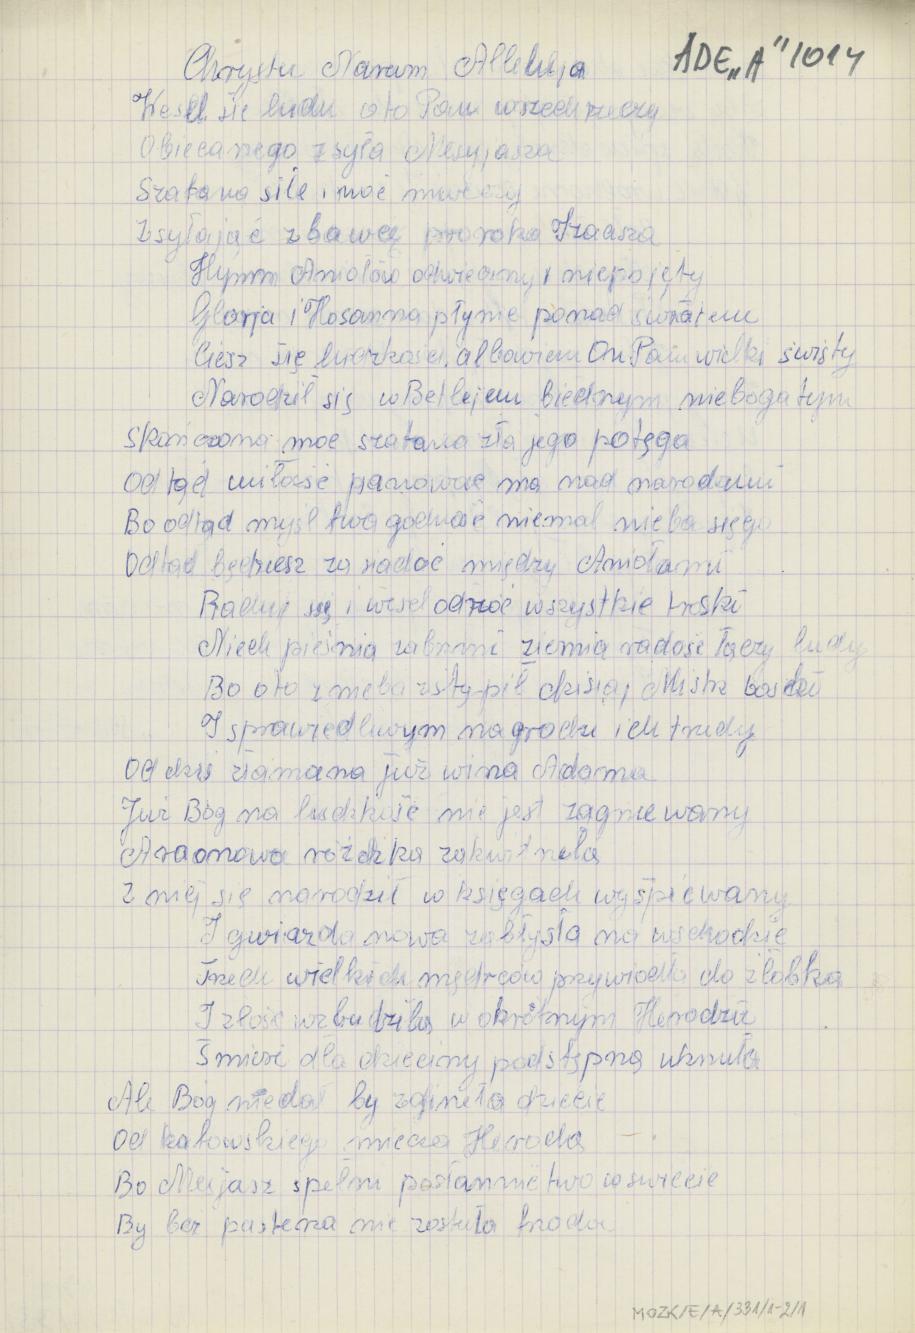 Chrystu Narum Alleluja
ADE„A"/1014
Wesel się ludu oto Pan wszechrzeczy
Obiecanego zsyła Mesyjasza
Szatana siłe i moć niweczy
Zsyłajać zbawcę proroka Izaasza
Hymm Aniołów odwieczny i niepojęty
Glorja i Hosanna płynie ponad światem
Ciesz się ludzkości, albowiem On Pan wielki święty
Narodził się w Betlejem biednym niebogatym
Skończona moc szatana zła jego potęga
Odtąd miłość panować ma nad narodami
Bo odtąd myśl twa godność niemal nieba sięga
Odtad będziesz zasiadać między Aniołami
Raduj się i wesel odrzuć wszystkie troski
Niech pieśnia zabrzmi ziemia radość łączy ludy
Bo oto z nieba zstąpił dzisiaj Mistrz boski
I sprawiedliwym nagrodzi ich trudy
Od dziś złamana już wina Adama
Już Bóg na ludzkość nie jest zagniewany
Araonowa różdżka zakwitneła
Z niej się narodził w księgach wyśpiewany
I gwiazda nowa zabłysła na wschodzie
Trzech wielkich mędrców przywiodła do żłóbka
I złość wzbudziła w okrótnym Herodzie
Śmierć dla dzieciny podstępną uknuła
Ale Bóg niedał by zgineła dziecie
Od katowskiego miecza Heroda
Bo Mesjasz spełni posłannictwo w świecie
By bez pasterza nie została trzoda
MOZK/E/A/331/1-2/1